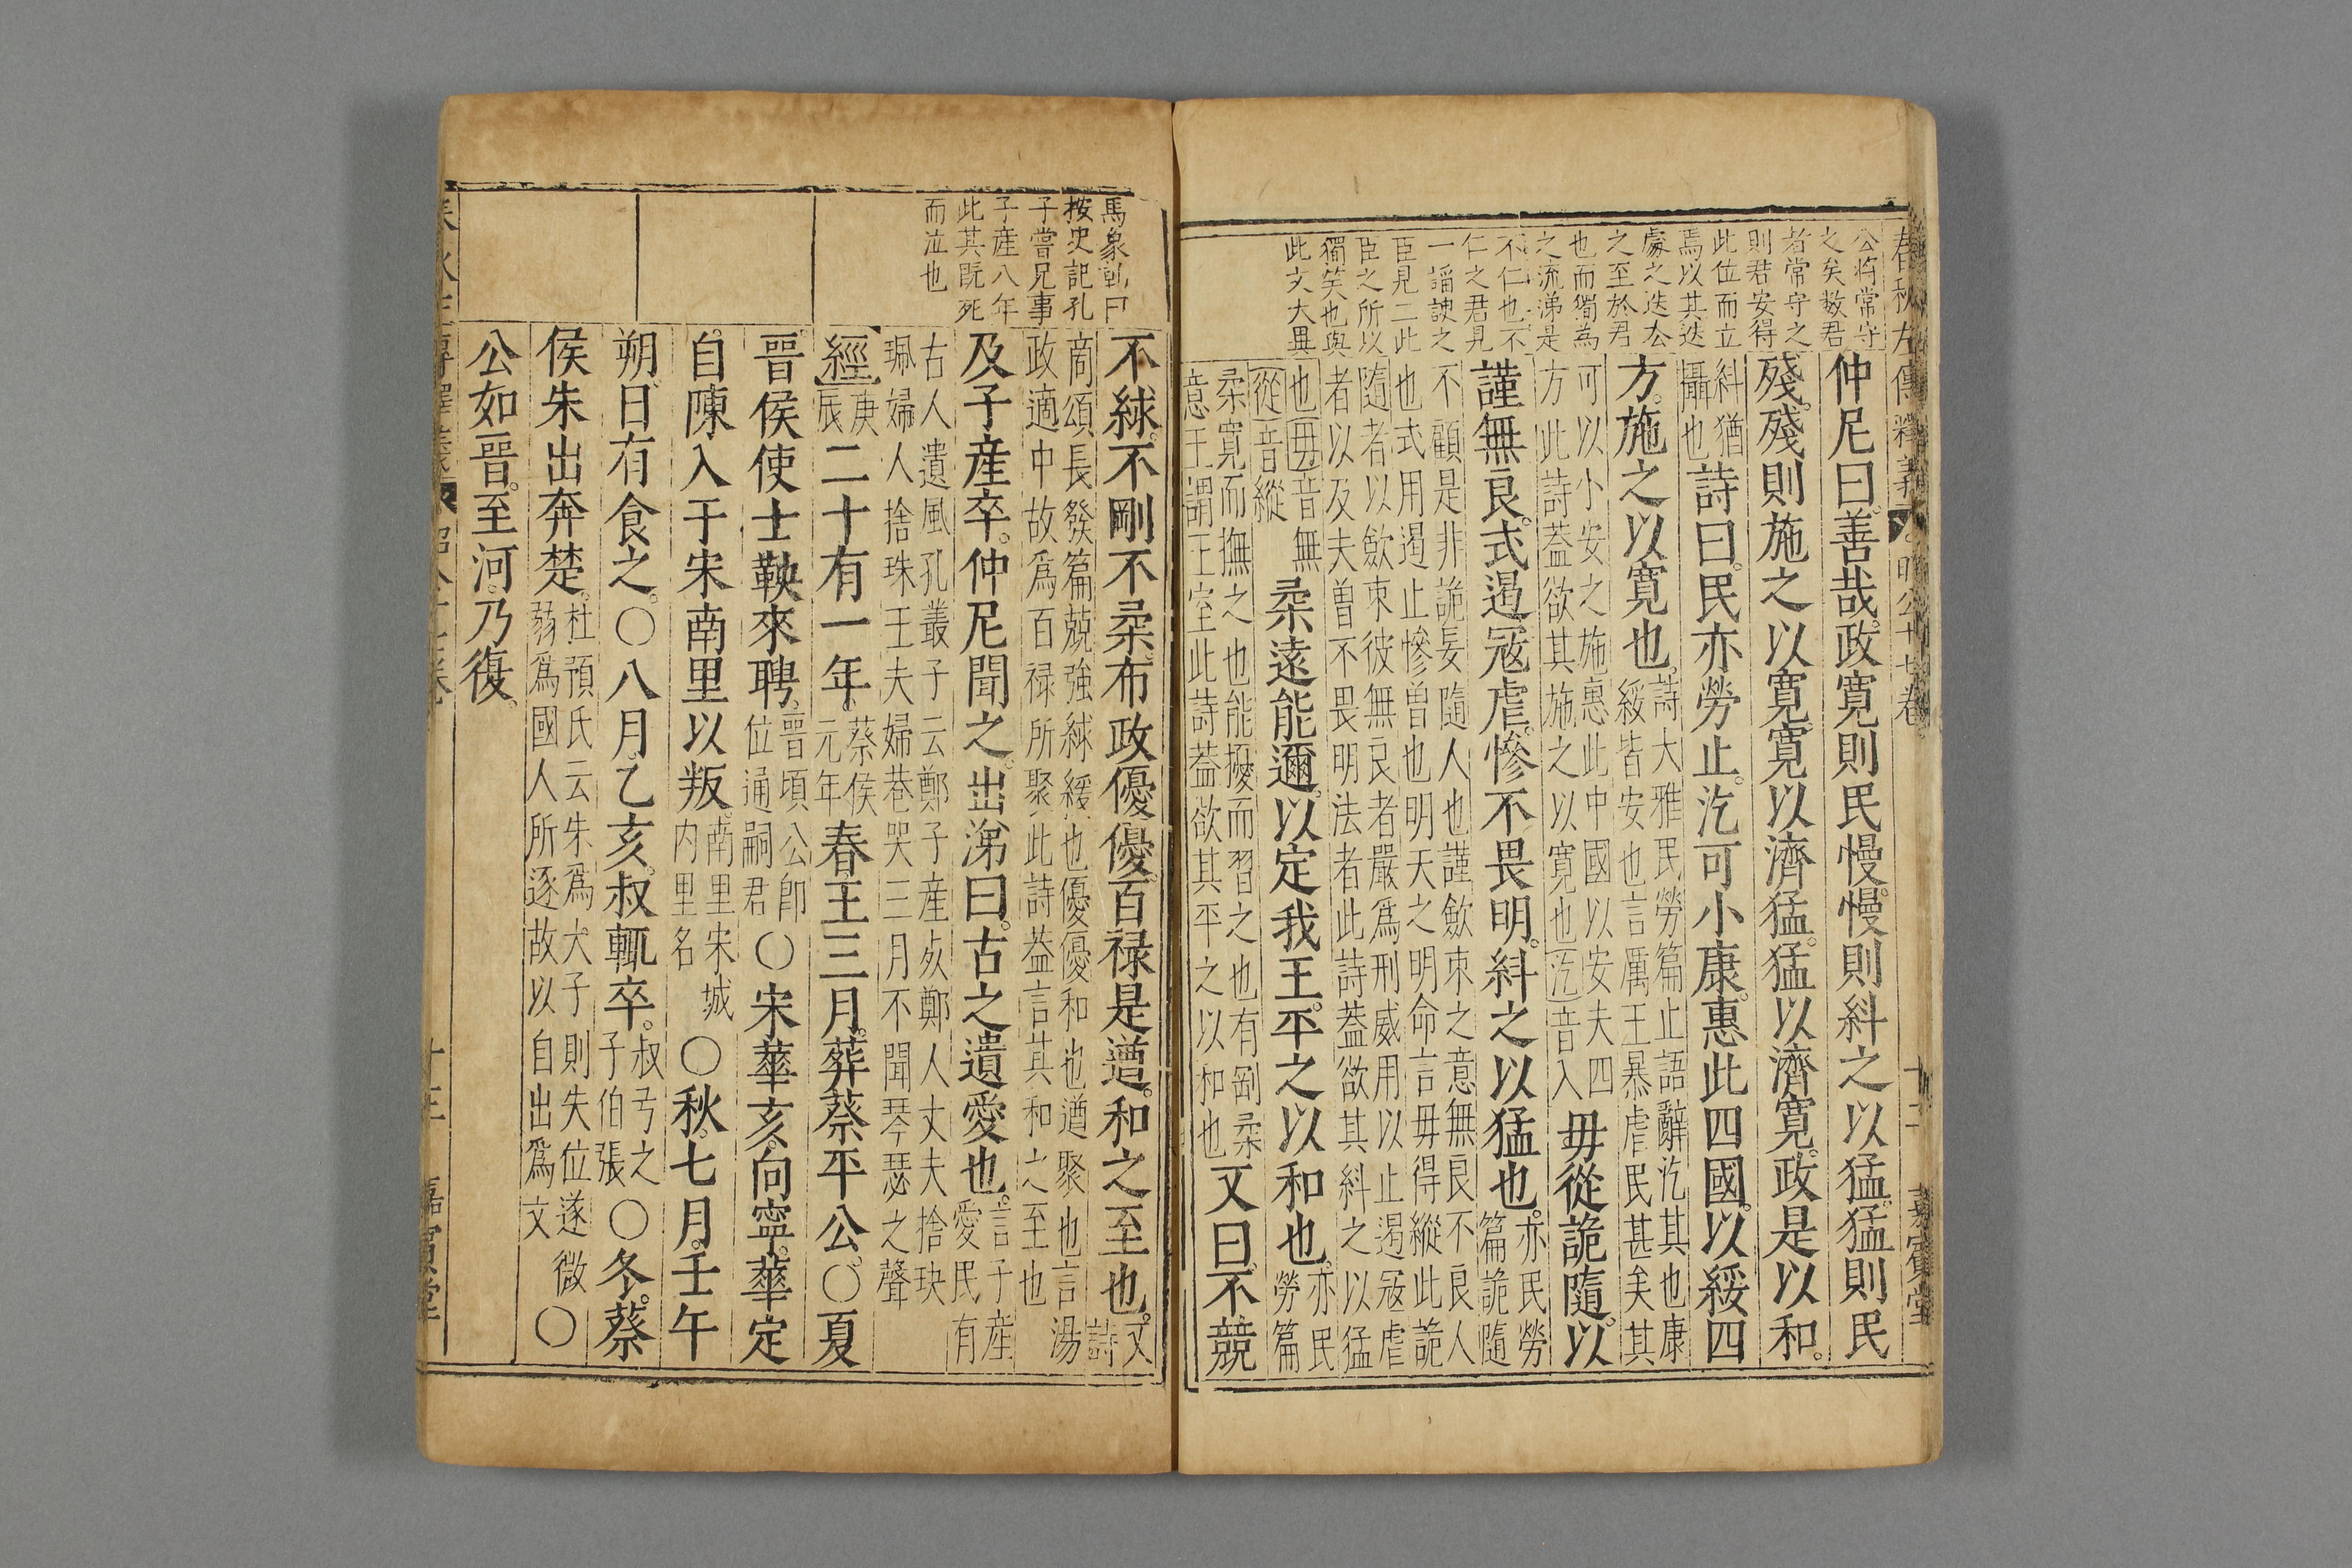 春秋左傳釋義 昭公十七卷 十二 嘉賓堂
公將常守
之矣數君
者常守之
則君安得
此位而立
焉以其迭
處之迭去
之至於君
也而獨為
之流涕是
不仁也不
仁之君見
一謟諛之
臣見二此
臣之所以
獨笑也與
此文大異
仲尼曰善哉政寬則民慢慢則糾之以猛猛則民
殘殘則施之以寬寬以濟猛猛以濟寬政是以和
糾猶
攝也
詩曰民亦勞止汔可小康惠此四國以綏四
方施之以寬也
詩大雅民勞篇止語辭汔其也康
綏皆安也言厲王暴虐民甚矣其
可以小安之施惠此中國以安夫四
方此詩蓋欲其施之以寬也汔音入
毋從詭隨以
謹無良式遏寇虐慘不畏明糾之以猛也
亦民勞
篇詭隨
不顧是非詭妄隨人也謹斂束之意無良不良人
也式用遏止慘曾也明天之明命言毋得縱此詭
隨者以斂束彼無良者嚴爲刑威用以止遏寇虐
者以及夫曽不畏明法者此詩蓋欲其糾之以猛
也毋音無
從音縱
柔遠能邇以定我王平之以和也
亦民
勞篇
柔寬而撫之也能擾而習之也有剛柔
意王謂王室此詩蓋欲其平之以和也
又曰不競
馬象乾曰
按史記孔
子嘗兄事
子産八年
此其既死
而泣也
不絿不剛不柔布政優優百禄是遒和之至也
又
詩
商頌長發篇競強絿緩也優優和也遒聚也言湯
政適中故爲百禄所聚此詩蓋言其和之至也
及子産卒仲尼聞之出涕曰古之遺愛也
言子産
愛民有
古人遺風孔叢子云鄭子産死鄭人丈夫捨玦
珮婦人捨珠玉夫婦巷哭三月不聞琴瑟之聲
經
庚
辰
二十有一年
蔡侯
元年
春王三月葬蔡平公〇夏
晉侯使士鞅來聘
晉頃公卽
位通嗣君
〇宋華亥向寧華定
自陳入于宋南里以叛
南里宋城
内里名
〇秋七月壬午
朔日有食之〇八月乙亥叔輒卒
叔弓之
子伯張
〇冬蔡
侯朱出奔楚
杜預氏云朱爲大子則失位遂微
弱爲國人所逐故以自出爲文
〇
公如晉至河乃復